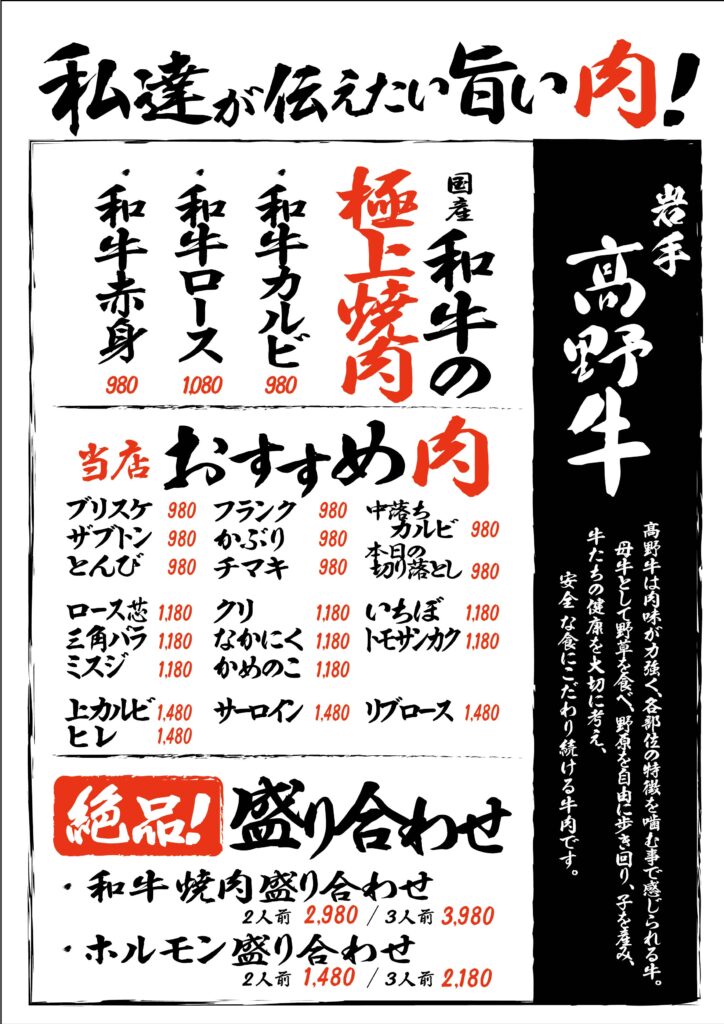 私達が伝えたい旨い肉!
岩手
高野牛
高野牛は肉味が力強く、各部位の特徴を噛む事で感じられる牛。
母牛として野草を食べ、野原を自由に歩き回り、子を産み、
牛たちの健康を大切に考え、
安全な食にこだわり続ける牛肉です。
国産 和牛の
極上焼肉
・和牛カルビ 980
・和牛ロース 1,080
・和牛赤身 980
当店 おすすめ肉
ブリスケ 980 フランク 980 中落ちカルビ 980
ザブトン 980 かぶり 980 本日の切り落とし 980
とんび 980 チマキ 980
ロース芯 1,180 クリ 1,180 いちぼ 1,180
三角バラ 1,180 なかにく 1,180 トモサンカク 1,180
ミスジ 1,180 かめのこ 1,180
上カルビ 1,480 サーロイン 1,480 リブロース 1,480
ヒレ 1,480
絶品! 盛り合わせ
・和牛焼肉盛り合わせ
2人前 2,980 / 3人前 3,980
・ホルモン盛り合わせ
2人前 1,480 / 3人前 2,180